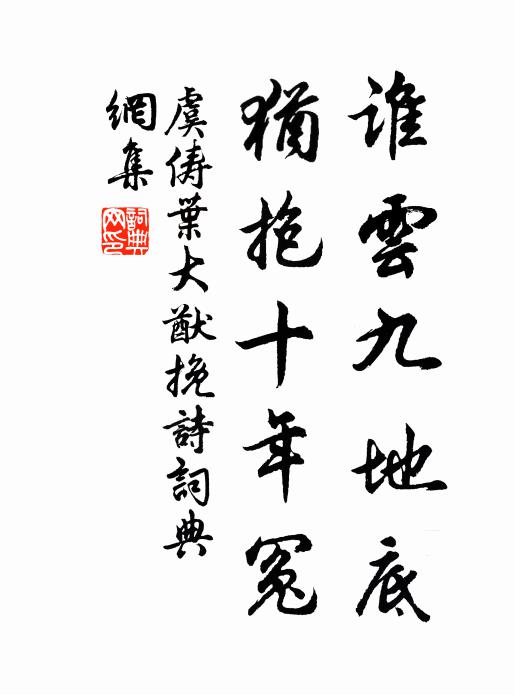 誰雲九地底
猶抱十年冤
虞儔葉大猷挽詩詞典
網集
詞典網印